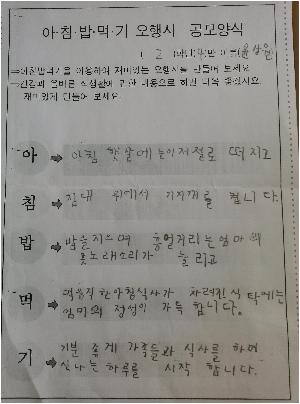 아·침·밥·먹·기 오행시 공모양식
⇒아침밥먹기를 이용하여 재미있는 오행시를 만들어 보세요
⇒건강과 올바른 식생활에 관한 내용으로 하면 더욱 좋겠지요.
재미있게 만들어 보세요.
아 ➡ 아침 햇살에 눈이 저절로 떠지고
침 ➡ 침대 위에서 기지개를 켭니다.
밥 ➡ 밥을 지으며 흥얼거리는 엄마의
콧노래소리가 들리고
먹 ➡ 먹음직한 아침식사가 차려진 식탁에는
엄마의 정성이 가득 합니다.
기 ➡ 기분 좋게 가족들과 식사를 하며
신나는 하루를 시작 합니다.